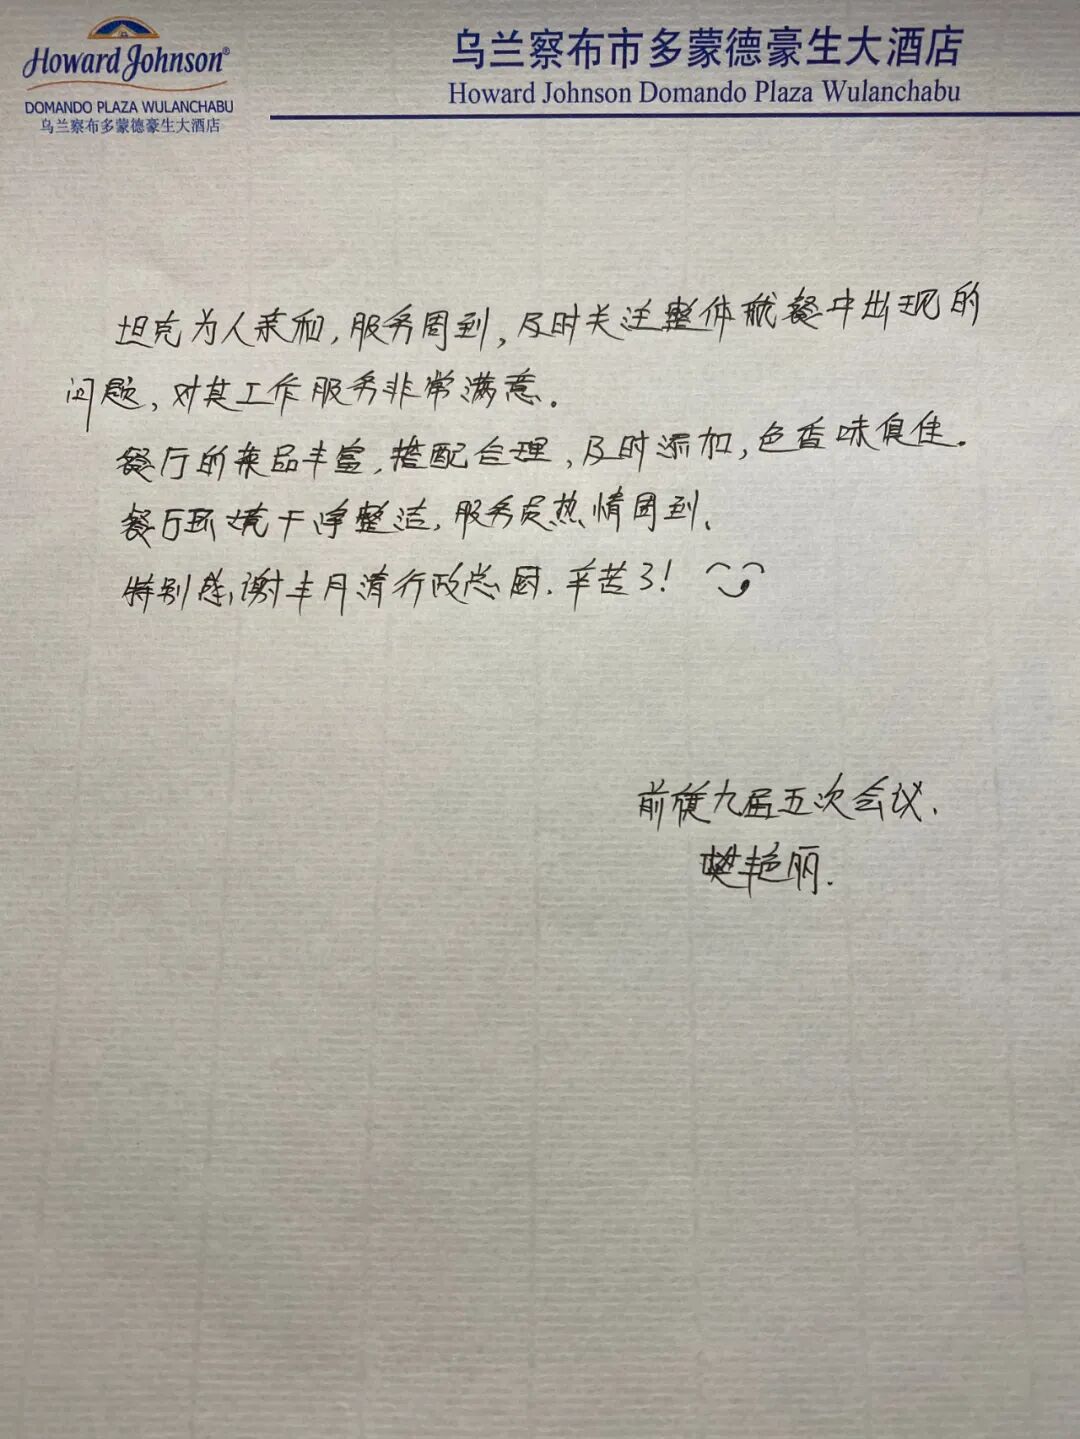 Howard Johnson®
DOMANDO PLAZA WULANCHABU
乌兰察布多蒙德豪生大酒店
乌兰察布市多蒙德豪生大酒店
Howard Johnson Domando Plaza Wulanchabu
坦克为人亲和,服务周到,及时关注整体就餐中出现的
问题、对其工作服务非常满意。
餐厅的菜品丰富,搭配合理,及时添加,色香味俱佳。
餐厅环境干净整洁,服务员热情周到、
特别感谢丰月清行政总厨.辛苦了!
前健九届五次会议.
樊艳丽.